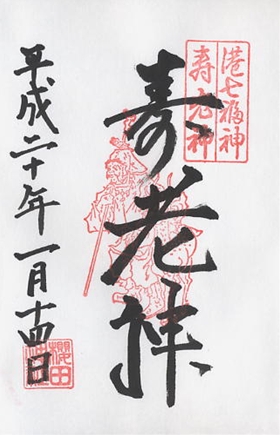 港七福神
寿老神
寿老神
平成二十年一月十四日
櫻田神社